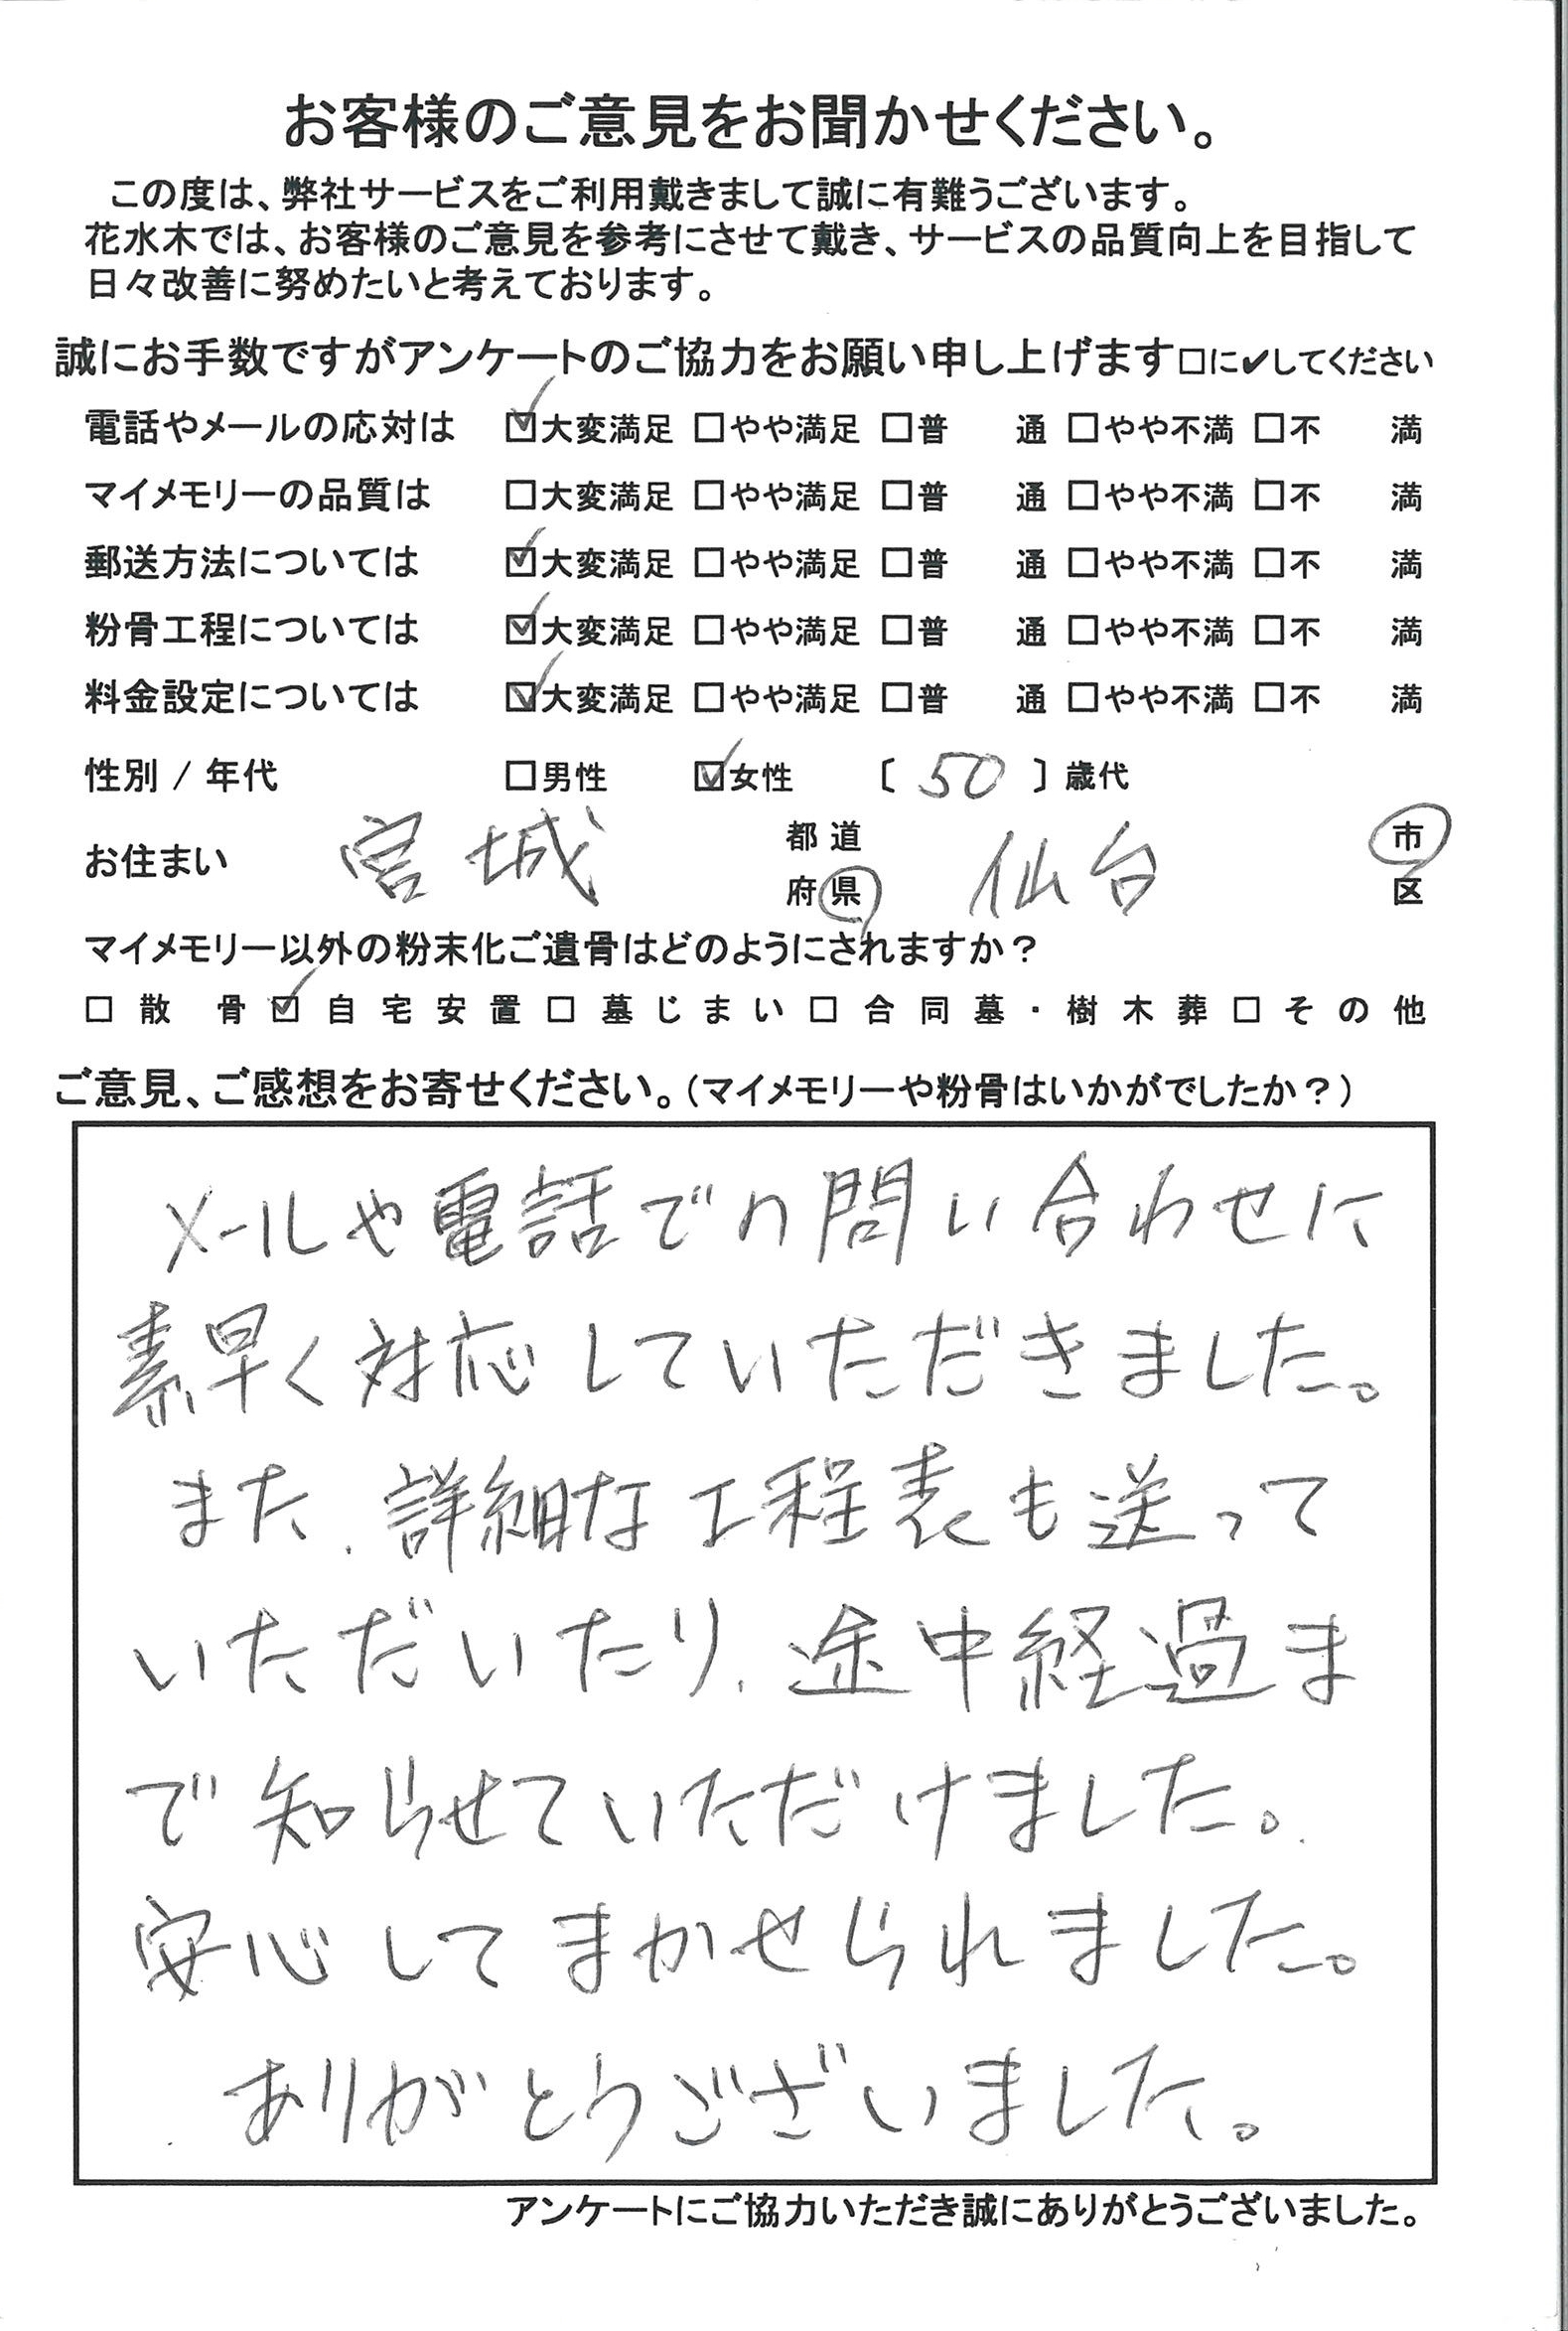 お客様のご意見をお聞かせください。
この度は、弊社サービスをご利用戴きまして誠に有難うございます。
花水木では、お客様のご意見を参考にさせて戴き、サービスの品質向上を目指して
日々改善に努めたいと考えております。
誠にお手数ですがアンケートのご協力をお願い申し上げます□に✔してください
電話やメールの応対は ☑大変満足 □やや満足 □普 通 □やや不満 □不 満
マイメモリーの品質は □大変満足 □やや満足 □普 通 □やや不満 □不 満
郵送方法については ☑大変満足 □やや満足 □普 通 □やや不満 □不 満
粉骨工程については ☑大変満足 □やや満足 □普 通 □やや不満 □不 満
料金設定については ☑大変満足 □やや満足 □普 通 □やや不満 □不 満
性別 / 年代 □男性 ☑女性 〔 50 〕歳代
お住まい 宮城 都道府県 仙台 市区
マイメモリー以外の粉末化ご遺骨はどのようにされますか？
□散 骨 ☑自宅安置 □墓じまい □合同墓・樹木葬 □その他
ご意見、ご感想をお寄せください。（マイメモリーや粉骨はいかがでしたか？）
メールや電話での問い合わせに
素早く対応していただきました。
また、詳細な工程表も送って
いただいたり、途中経過ま
で知らせていただけました。
安心してまかせられました。
ありがとうございました。
アンケートにご協力いただき誠にありがとうございました。